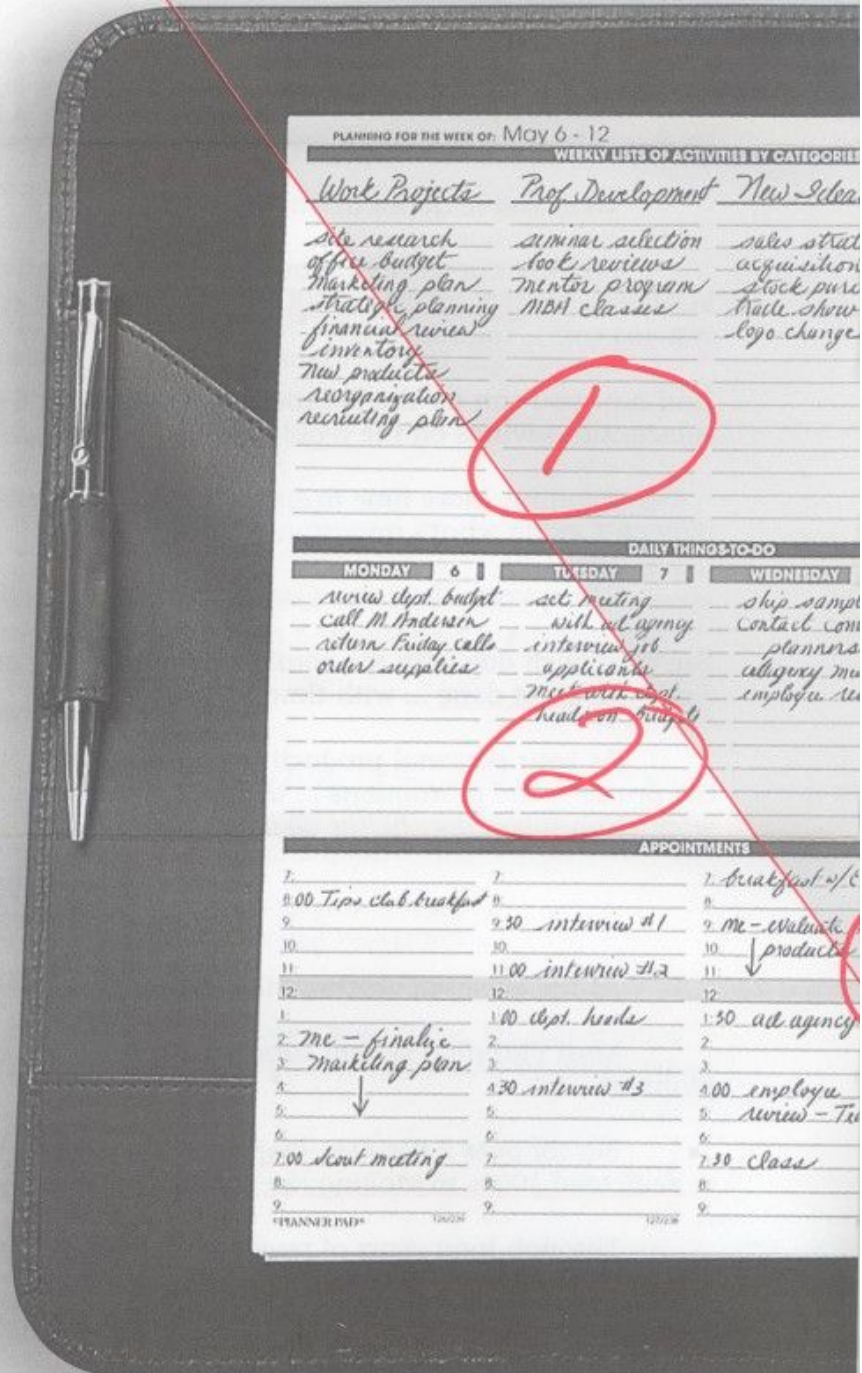 PLANNING FOR THE WEEK OF: May 6 - 12
WEEKLY LISTS OF ACTIVITIES BY CATEGORIE
Work Projects
site research
office budget
marketing plan
strategic planning
financial review
inventory
new products
reorganization
recruiting plan
Prof. Development
seminar selection
book reviews
mentor program
MBA classes
New Idea
sales strat
acquisition
stock purc
trade show
logo change
1
DAILY THINGS-TO-DO
MONDAY 6
review dept. budget
call M. Anderson
return Friday calls
order supplies
TUESDAY 7
set meeting
with ad agency
interview job
applicants
meet with dept.
heads on budgets
WEDNESDAY
ship sampl
contact
planners
employee
2
APPOINTMENTS
7:
8:00 Tips club breakfast
9
10:
11:
12:
1:
2: me - finalize
3: marketing plan
4:
5:
6:
7:00 Scout meeting
8:
9:
7:
8:
9:30 interview #1
10:
11:00 interview #2
12:
1:00 dept. heads
2:
3:
4:30 interview #3
5:
6:
7:
8:
9:
7: breakfast w/
8:
9: me - evaluate
10: products
11:
12:
1:30 ad agency
2:
3:
4:00 employee
5: review - 
6:
7:30 class
8:
9:
PLANNER PAD®
126/239
127/238